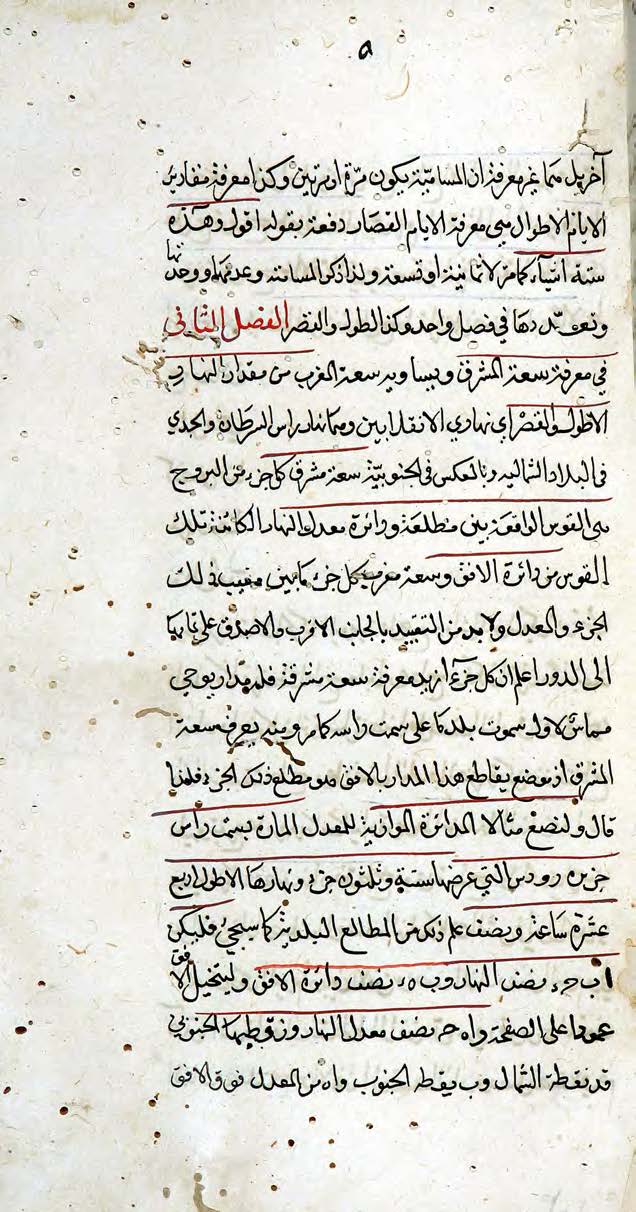 ٥
آخر بل مما غير معرفة ان المسامتة يكون مرة او مرتين وكذا معرفة مقادير
الايام الاطوال هي معرفة الايام القصار دفعة بقوله اقول وهذه
ستة اشياء كما مر لا ثمانية او تسعة ولذا ذكر المسامتة وعدمها ووحدتها
وتعددها في فصل واحد وكذا الطول والقصر الفصل الثاني
في معرفة سعة المشرق ويساويه سعة المغرب من مقدار النهار
الاطول والقصر اي نهاري الانقلابين وهما نهار راس السرطان والجدي
في البلاد الشمالية وبالعكس في الجنوبية سعة مشرق كل جزء من البروج
هي القوس الواقعة بين مطلعة ودائرة معدل النهار الكائنة تلك
القوس من دائرة الافق وسعة مغرب كل جزء ما بين مغيب ذلك
الجزء والمعدل ولا بد من التقييد بالجانب الاقرب والا صدق على
الى الدور اعلم ان كل جزء اريد معرفة سعة مشرقة فله مدار يومي
مماس لاول سموت بلد ما على سمت راسه كما مر وبنه يعرف سعة
المشرق اذ موضع يقاطع هذا المدار بالافق هو مطلع ذلك الجزء فلهذا
قال ولنضع مثالا الدائرة الموازية للمعدل المارة بسمت راس
جزيره رودس التي عرضها ستة وثلثون جزء ونهارها الاطول اربع
عشرة ساعة ونصف علم ذلك من المطالع البلدية كما سيجيء فليكن
ا ب ح د نصف النهار و ب ه د نصف دائرة الافق وليتخيل الافق
عمودا على الصفحة و ا ه ح نصف معدل النهار و ز قطبها الجنوبي
فد نقطة الشمال و ب نقطة الجنوب و ا ه من المعدل فوق الافق